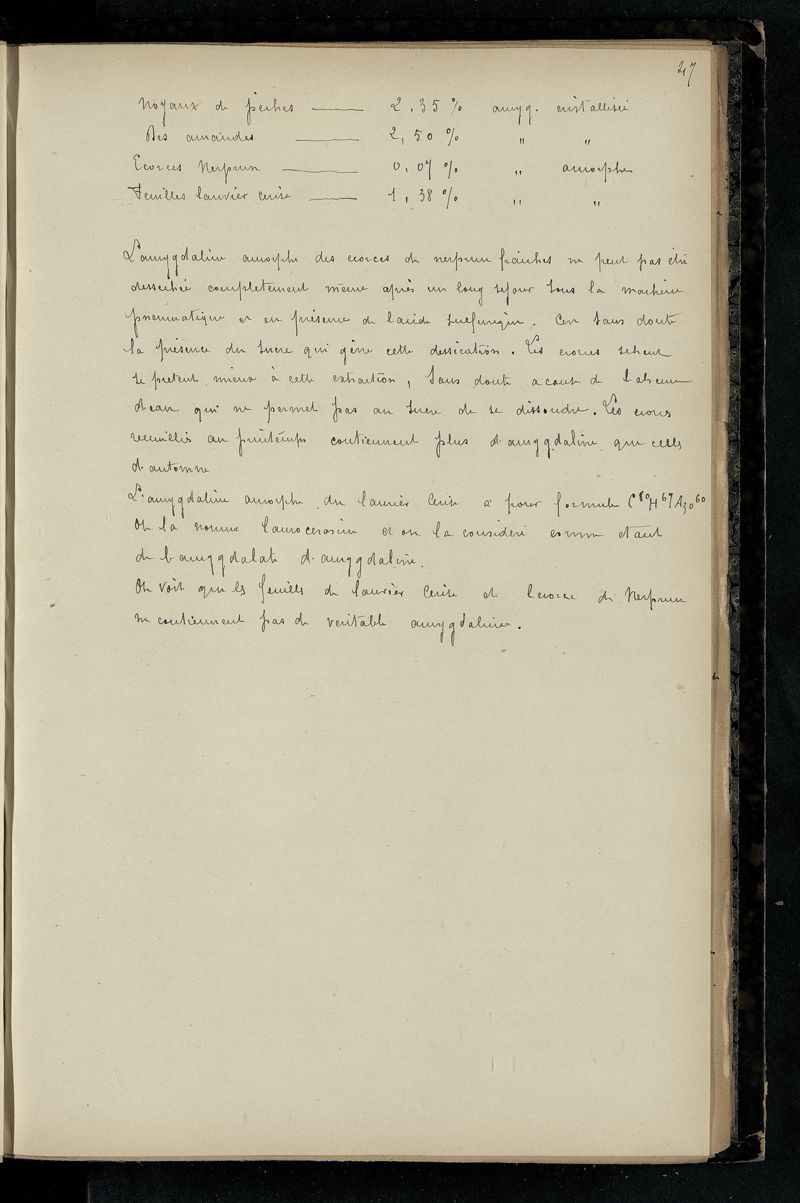 47
Noyaux de pêches —— 2,35 % amyg. cristallisée
Des amandes —— 2,50 % " "
Ecorces Nerprun —— 0,07 % " amorphe
Feuilles laurier cerise —— 1,38 % " "
L'amygdaline amorphe des ecorces de nerprun fraiches ne peut pas être
dessechée completement même après un long sejour sous la machine
pneumatique et en présence de l'acide sulfurique. C'en sans doute
la présence du sucre qui gène cette dessication. Les ecorces sechent
se pretent mieux à cette extraction, sans doute a cause de l'absence
d'eau qui ne permet pas au sucre de se dissoudre. Les ecorces
recueillies au printemps contiennent plus d'amygdaline que celles
d'automne
L'amygdaline amorphe du laurier cerise a pour formule C⁸⁰H⁶⁷AzO⁶⁰
On la nomme laurocerasine et on la considere comme etant
de l'amygdalate d'amygdaline.
On voit que les feuilles de laurier cerise et l'ecorce de Nerprun
ne contiennent pas de veritable amygdaline.